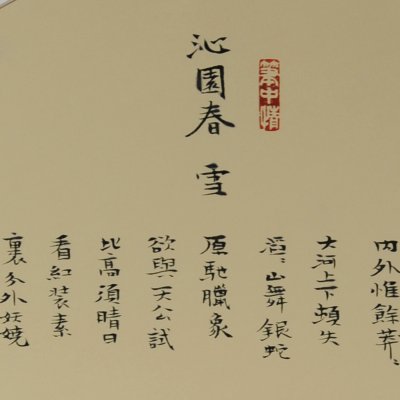 沁園春 雪
筆中情
内外惟餘莽〻
大河上下頓失
滔〻山舞銀蛇
原馳臘象
欲與天公試
比高須晴日
看紅裝素
裹分外妖嬈